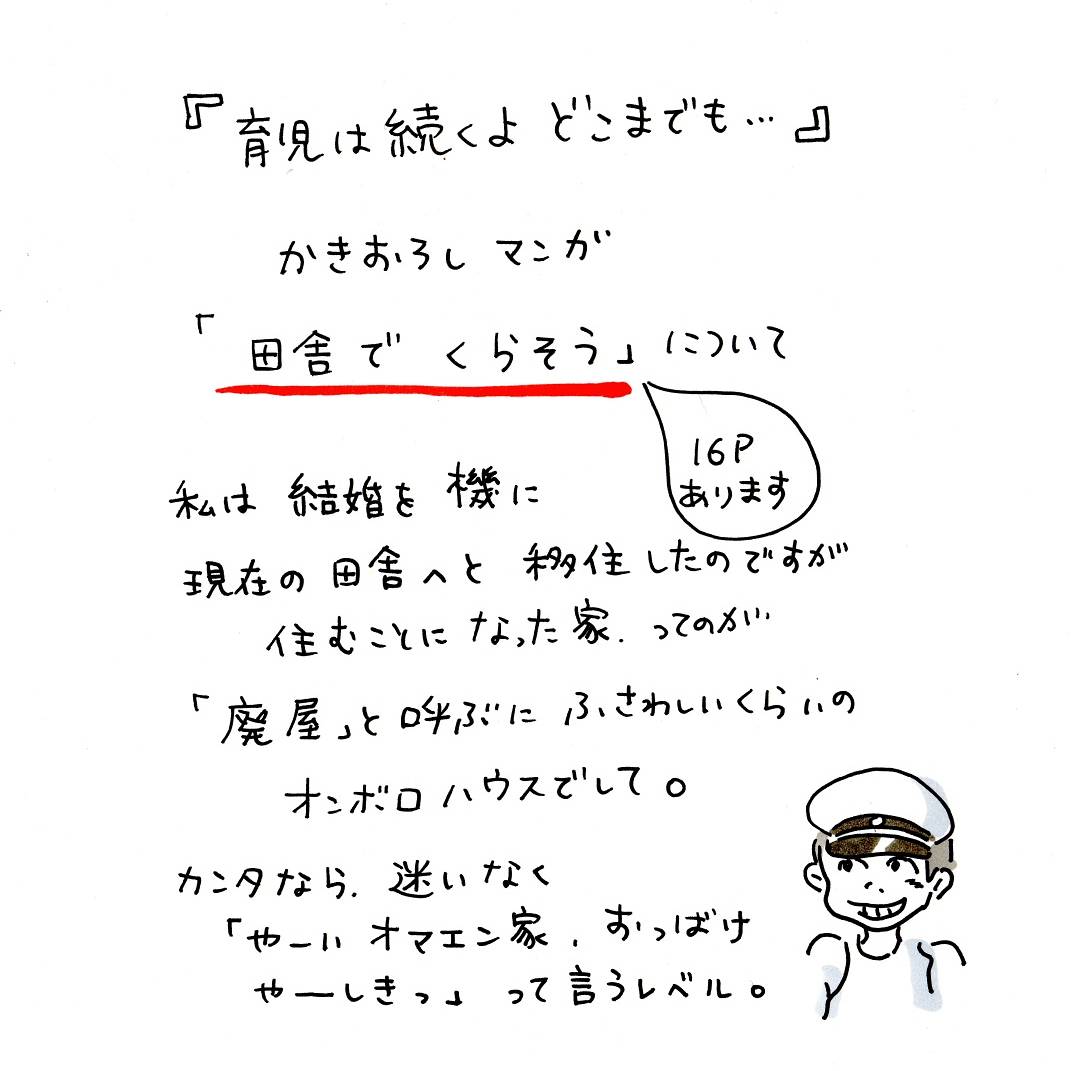 『育児は続くよ どこまでも…』
かきおろし マンガ
「田舎で くらそう」について
16P
あります
私は 結婚を 機に
現在の 田舎へと 移住したのですが
住むことに なった家、ってのが
「廃屋」と 呼ぶに ふさわしいくらいの
オンボロ ハウスでして。
カンタなら、迷いなく
「やーい オマエン家、おっばけ
やーしきっ」 って 言うレベル。